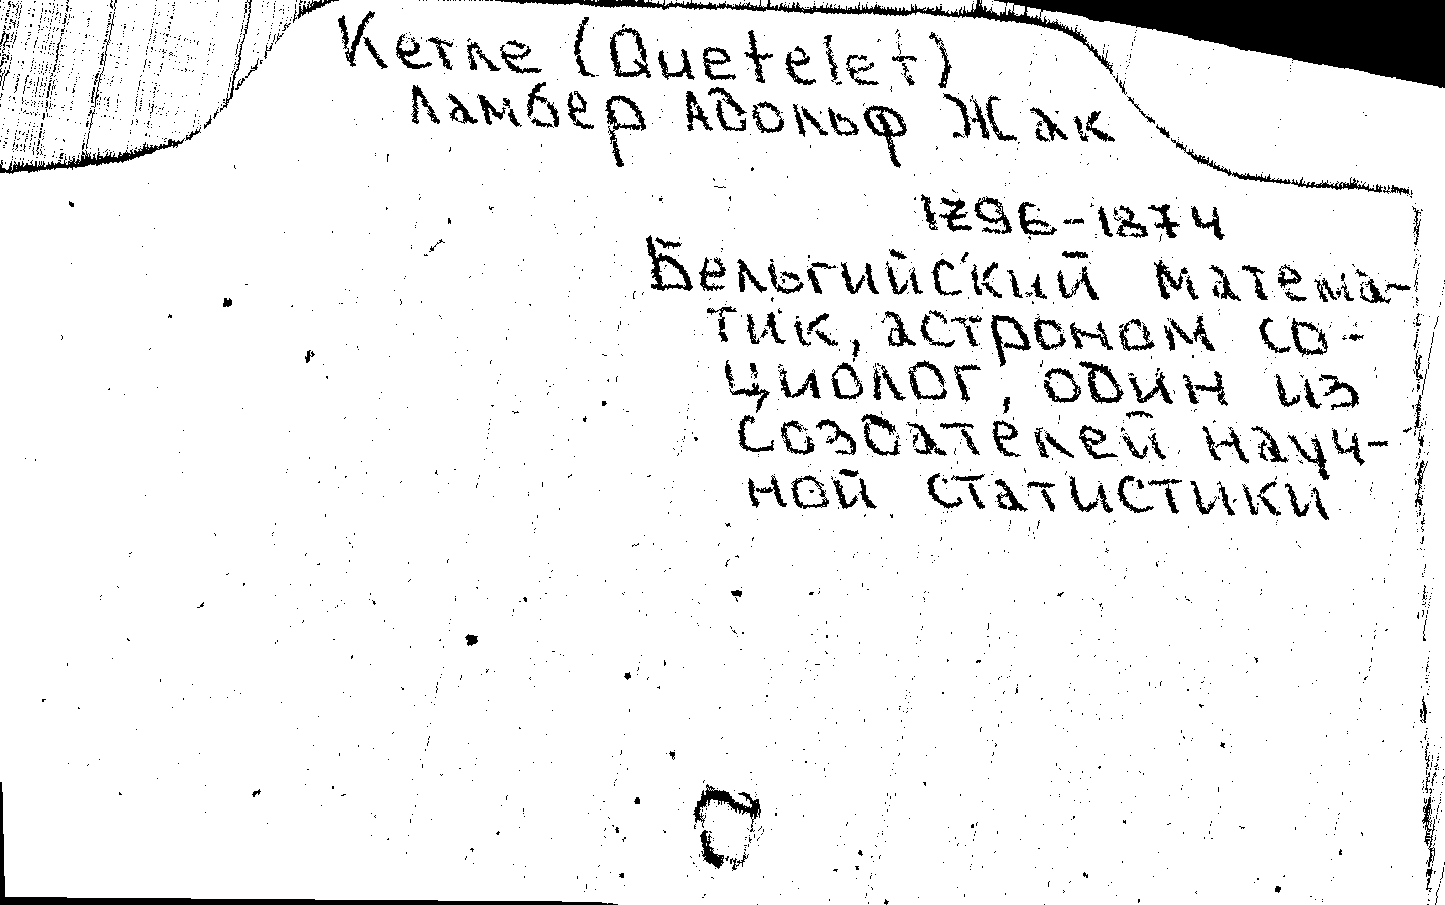 Кетле (Quetelet)
Ламбер Адольф Жак
1796-1874
Бельгийский матема-
тик, астроном со-
циолог, один из
создателей науч-
ной статистики